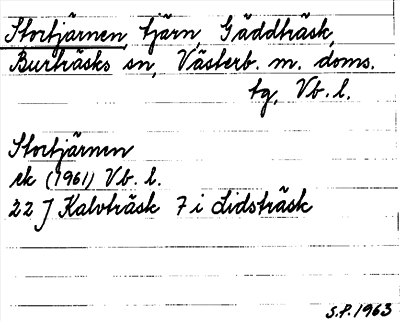 Stortjärnen, tjärn, Gäddträsk,
Burträsks sn, Västerb. m. doms.
tg, Vb. l.
Stortjärnen
ek (1961) Vb. l.
22 J Kalvträsk 7 i Lidsträsk
S.P. 1963